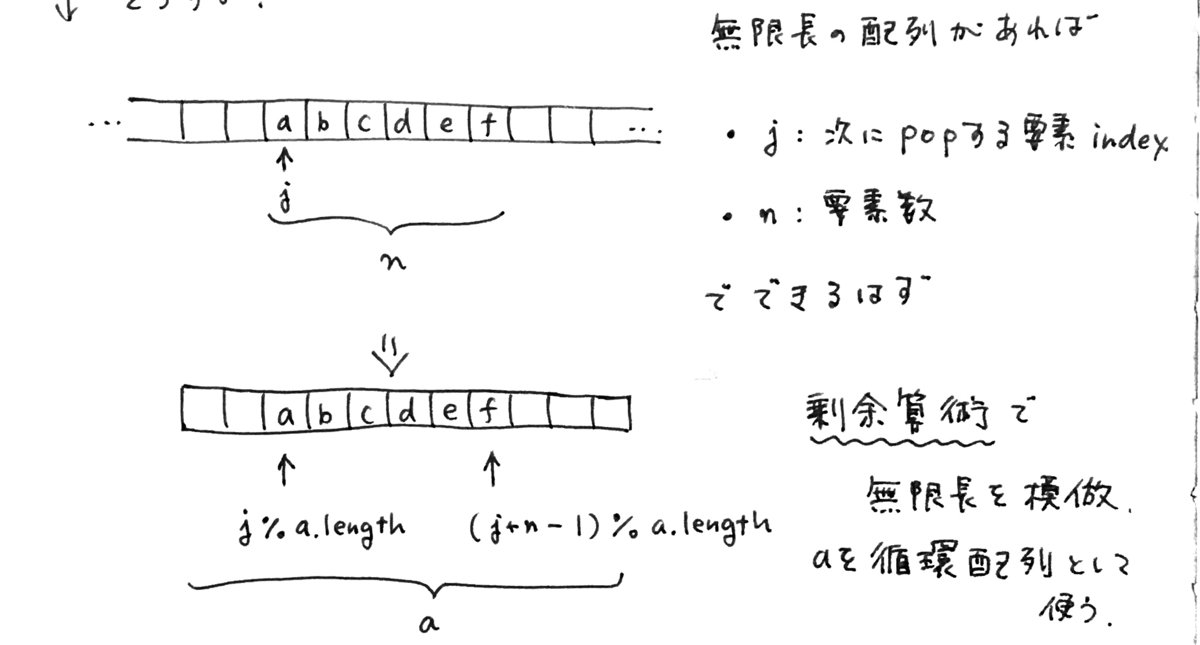 無限長の配列があれば
... a b c d e f ...
・ j : 次に pop する要素 index
j
・ n : 要素数
n
でできるはず
a b c d e f
剰余算術で
無限長を模倣.
j % a.length (j+n-1) % a.length
aを循環配列として
使う.
a